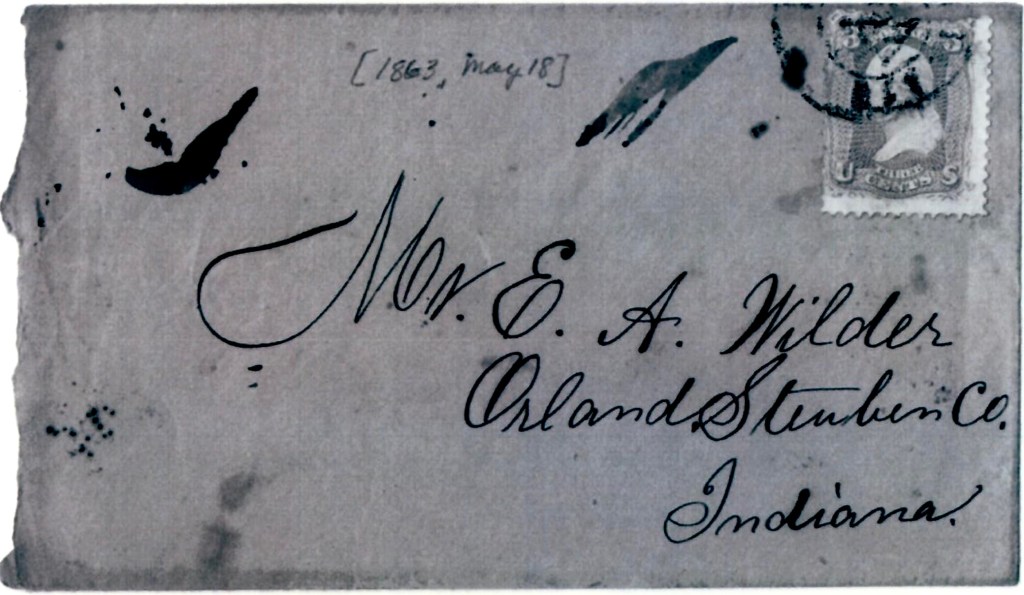 [1863, May 18]
3 3
U THREE CENTS S
Mr. E. A. Wilder
Orland Steuben Co.
Indiana.